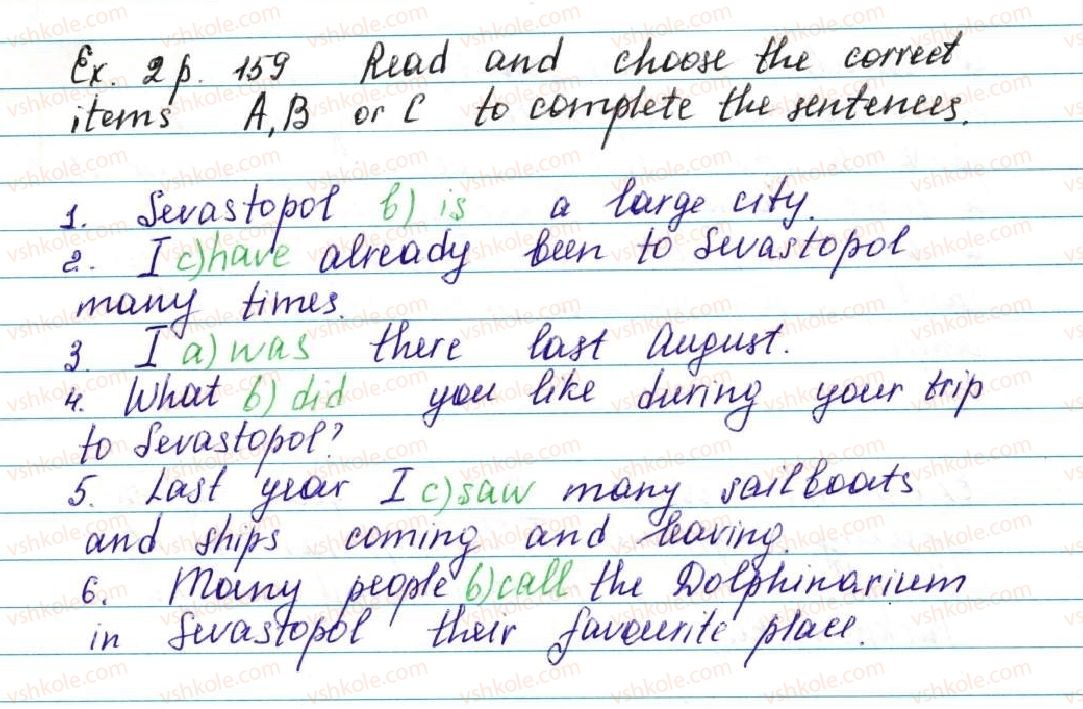 Ex. 2 p. 159 Read and choose the correct
items A, B or C to complete the sentences.
1. Sevastopol b) is a large city.
2. I c) have already been to Sevastopol
many times.
3. I a) was there last August.
4. What b) did you like during your trip
to Sevastopol?
5. Last year I c) saw many sailboats
and ships coming and leaving.
6. Many people b) call the Dolphinarium
in Sevastopol their favourite place.
vshkole.com